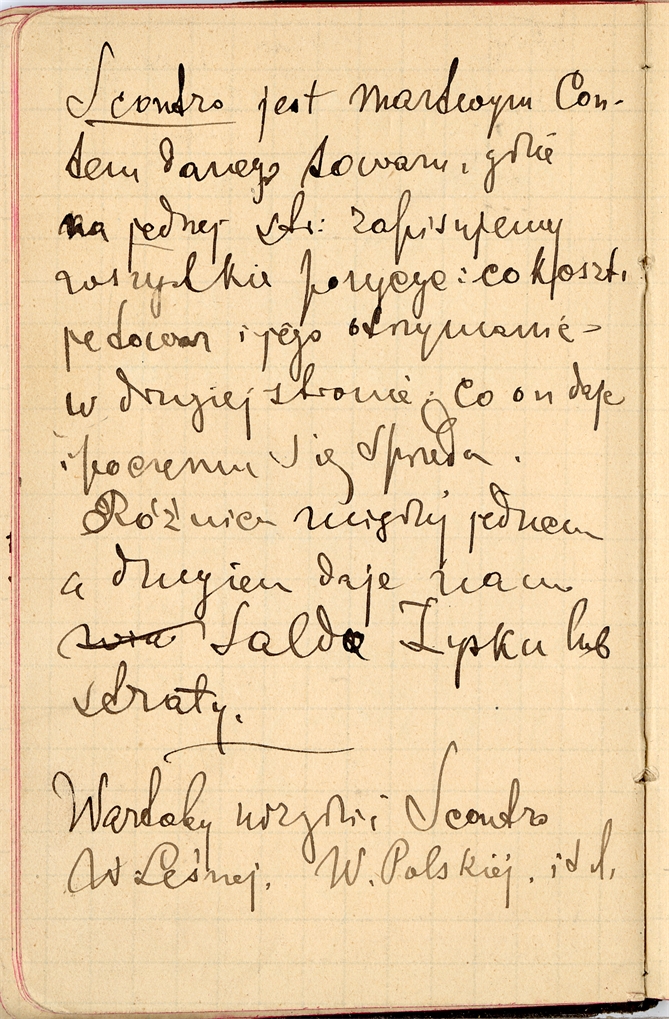 Scontro jest martwym Con-
tem danego towaru, gdzie
na jednej str: zapisujemy
wszystkie pozycye: co koszt.
je towar i jego otrzymanie -
w drugiej stronie: co on daje
i poczemu się sprzeda.
Różnica między jednem
a drugiem daje nam
Saldo Zysku lub
straty.
Wartoby urządzić Scontro
W Leśnej. W. Polskiej. itd.